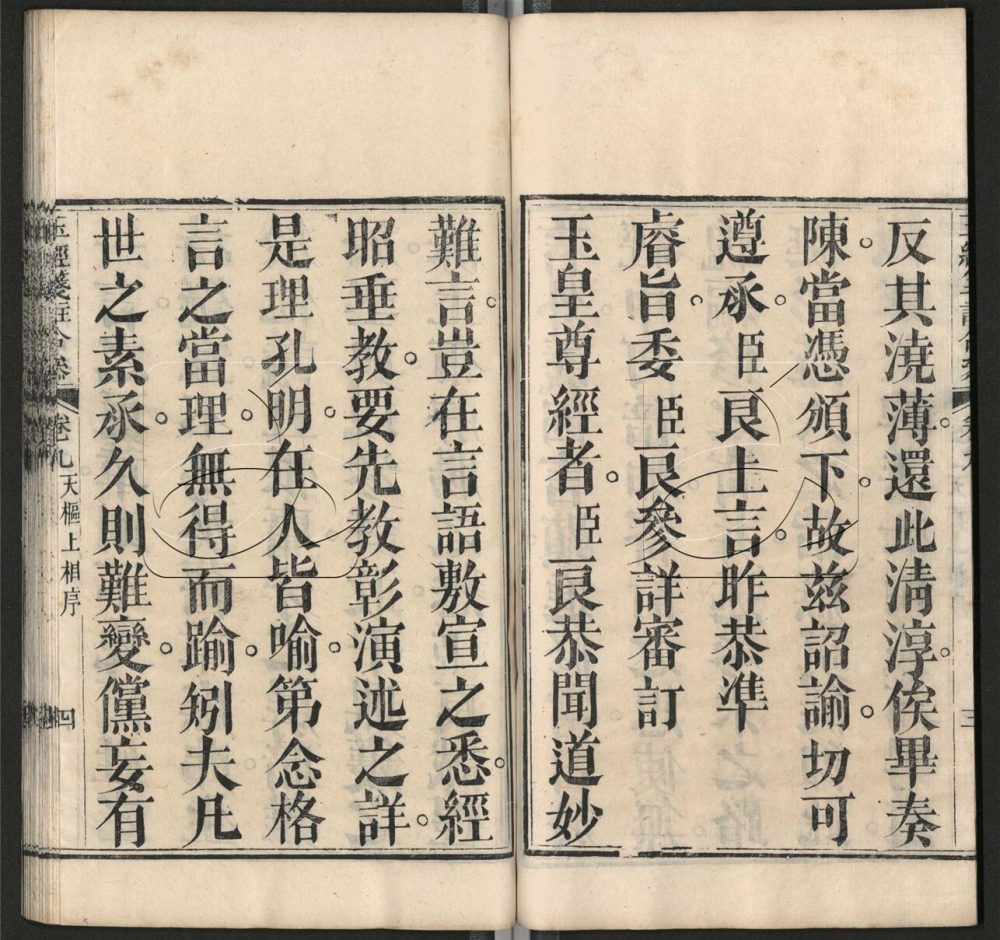 反其澆薄。還此淸淳。俟畢奏
陳。當憑頒下。故茲詔諭。切可
遵承。臣艮上言。昨恭準
睿旨。委臣艮參詳審訂
玉皇尊經者。臣艮恭聞道妙
難言。豈在言語敷宣之悉。經
昭垂教。要先教彰演述之詳。
是理孔明。在人皆喻。第念格
言之當理。無得而踰。矧夫凡
世之素承。久則難變。儻妄有
玉經箋註合 卷九 天樞上相序 四